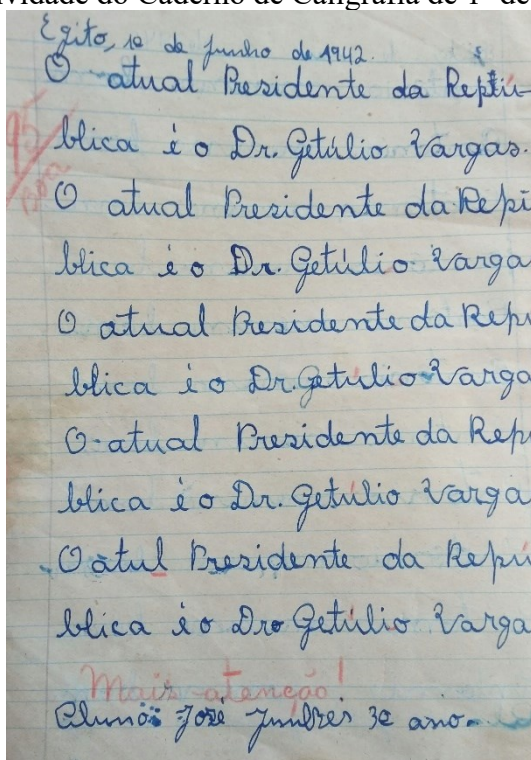 vidade do Caderno de Caligrafia de 1º de
Egito, 1º de junho de 1942.
O atual Presidente da Repú-
95
blica é o Dr. Getúlio Vargas.
Boa
O atual Presidente da Repú
blica é o Dr. Getúlio Varga
O atual Presidente da Repu
blica é o Dr. Getulio Varga
O atual Presidente da Repu
blica é o Dr. Getúlio Varga
O atul Presidente da Repú
blica é o Dro Getúlio Varga
Mais atenção!
Aluno: José 3º ano.